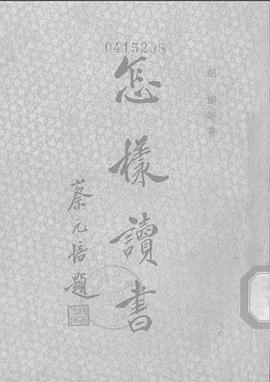 0415208
胡適等著
怎樣讀書
蔡元培題